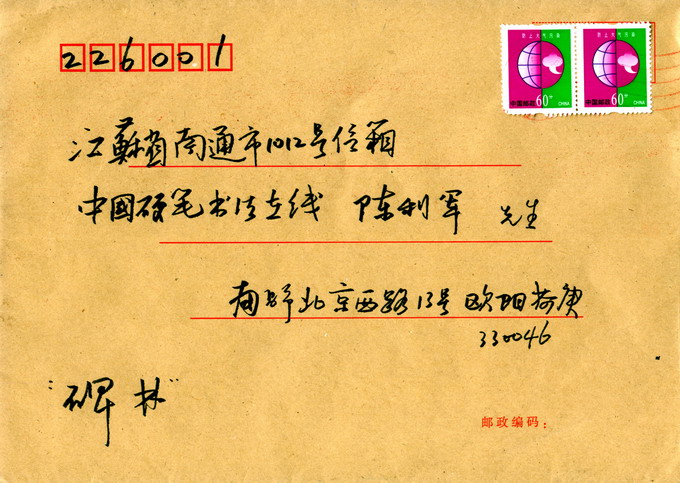 226001
防止大气污染 防止大气污染
中国邮政 60分 CHINA 中国邮政 60分 CHINA
江蘇省南通市1012号信箱
中国硬笔书法在线 陈利军 先生
南昌北京西路13号 欧阳荷庚
330046
"碑林"
邮政编码：